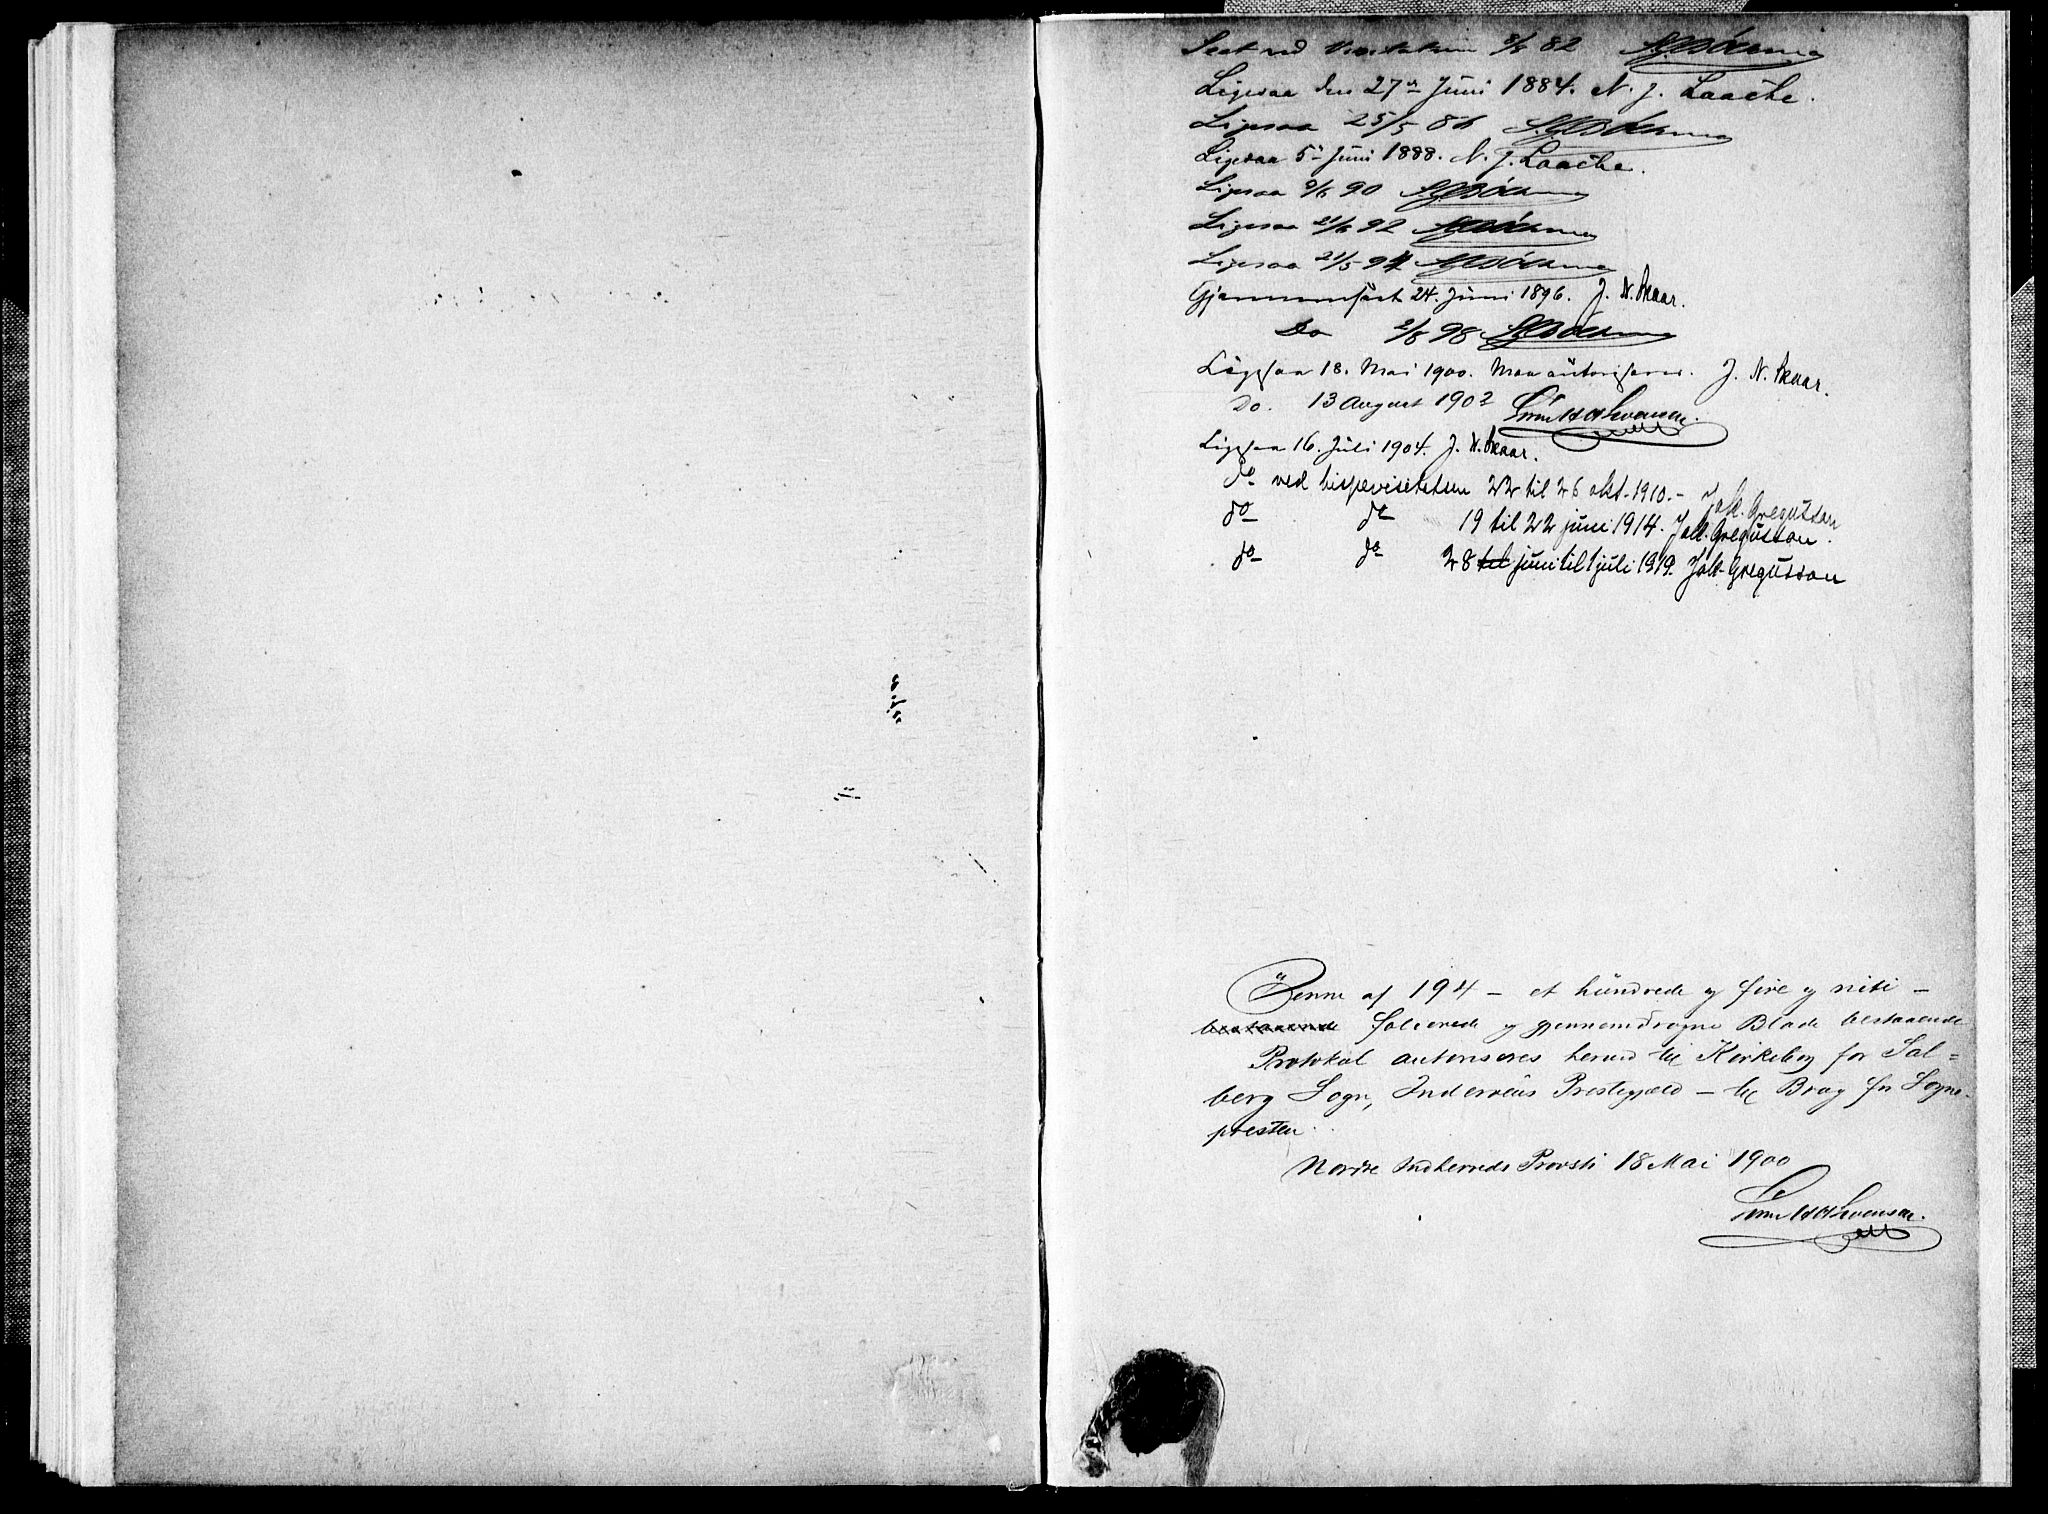 Seet ved Visitatsen 8/8 82
Ligesaa den 27de Juni 1884. N. J. Laache.
Ligesaa 25/5 86
Ligesaa 5te Juni 1888. N. J. Laache.
Ligesaa 9/6 90
Ligesaa 21/6 92
Ligesaa 21/5 94
Gjennemseet 24. Juni 1896. J. N. Skaar.
Do 2/8 98
Ligesaa 18. Mai 1900. Maa autoriseres. J. N. Skaar.
Do. 13 August 1902
Ligesaa 16. Juli 1904. J. N. Skaar.
do ved bispevisitatsen 22 til 26 okt. 1910.- Joh. Gregusson
do do 19 til 22 juni 1914. Joh. Gregusson.
do do 28 til juni til 1 juli 1919. Joh. Gregusson
Denne af 194 – et hundrede og fire og niti –
bestaaende folierede og gjennemdragne Blade bestaaende
Protokol autoriseres herved til Kirkebog for Sal=
berg Sogn, Inderøens Prestegjæld – til Brug for Sogne-
presten.
Nordre Indherreds Provsti 18 Mai 1900